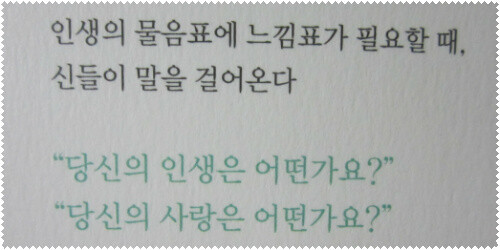 인생의 물음표에 느낌표가 필요할 때,
신들이 말을 걸어온다
“당신의 인생은 어떤가요?”
“당신의 사랑은 어떤가요?”